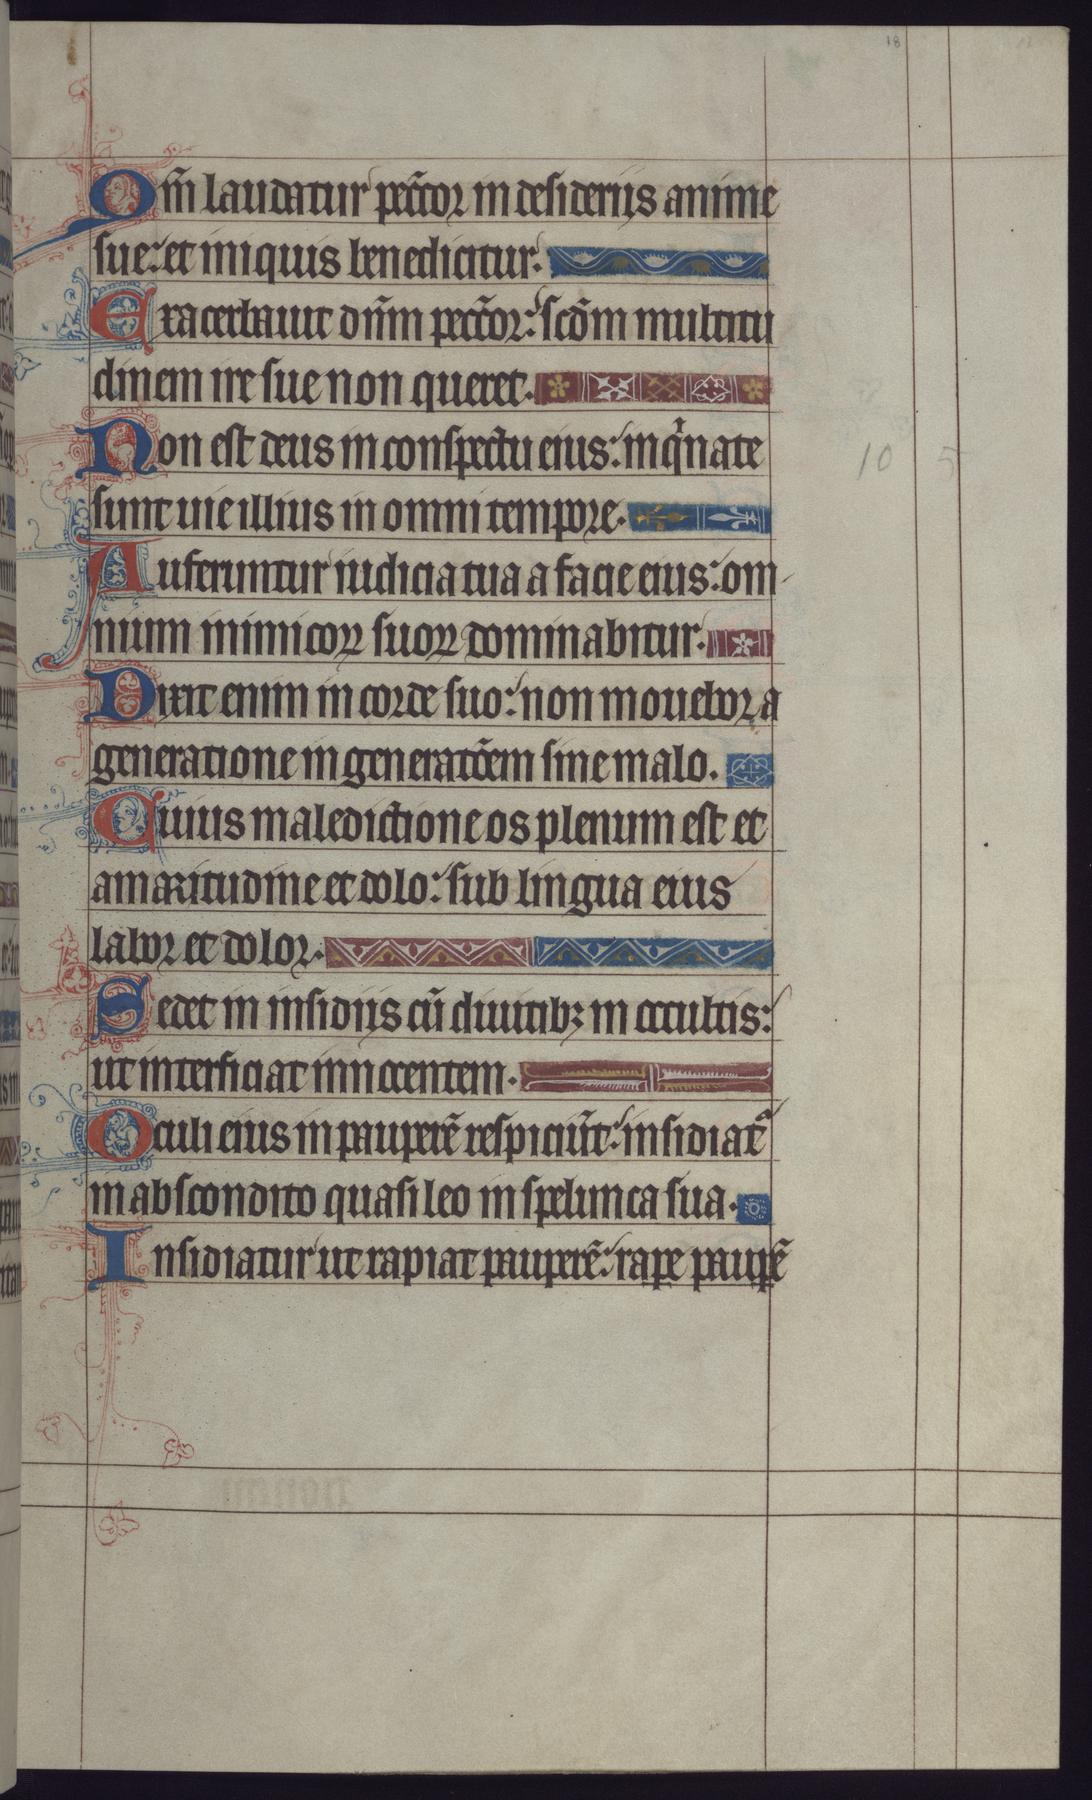 18
Qm̄ laudatur pecc̄tor in desiderijs anime
sue: et iniquis benedicitur.
Exacerbauit dn̄m pecc̄tor: scd̄m multitu
dinem ire sue non queret.
Non est deus in conspectu eius: inq̄nate
10 5
sunt uie illius in omni tempore.
Auferuntur iudicia tua a facie eius: om-
nium inimicoꝝ suoꝝ dominabitur.
Dixit enim in corde suo: non mouebor a
generatione in generatōem sine malo.
Cuius maledictione os plenum est et
amaritudine et dolo: sub lingua eius
labor et dolor.
Sedet in insidijs cū diuitibꝫ in occultis:
ut interficiat innocentem.
Oculi eius in pauperē respiciūt: insidiat᷑
in abscondito quasi leo in spelunca sua.
Insidiatur ut rapiat pauperē: rape paupē